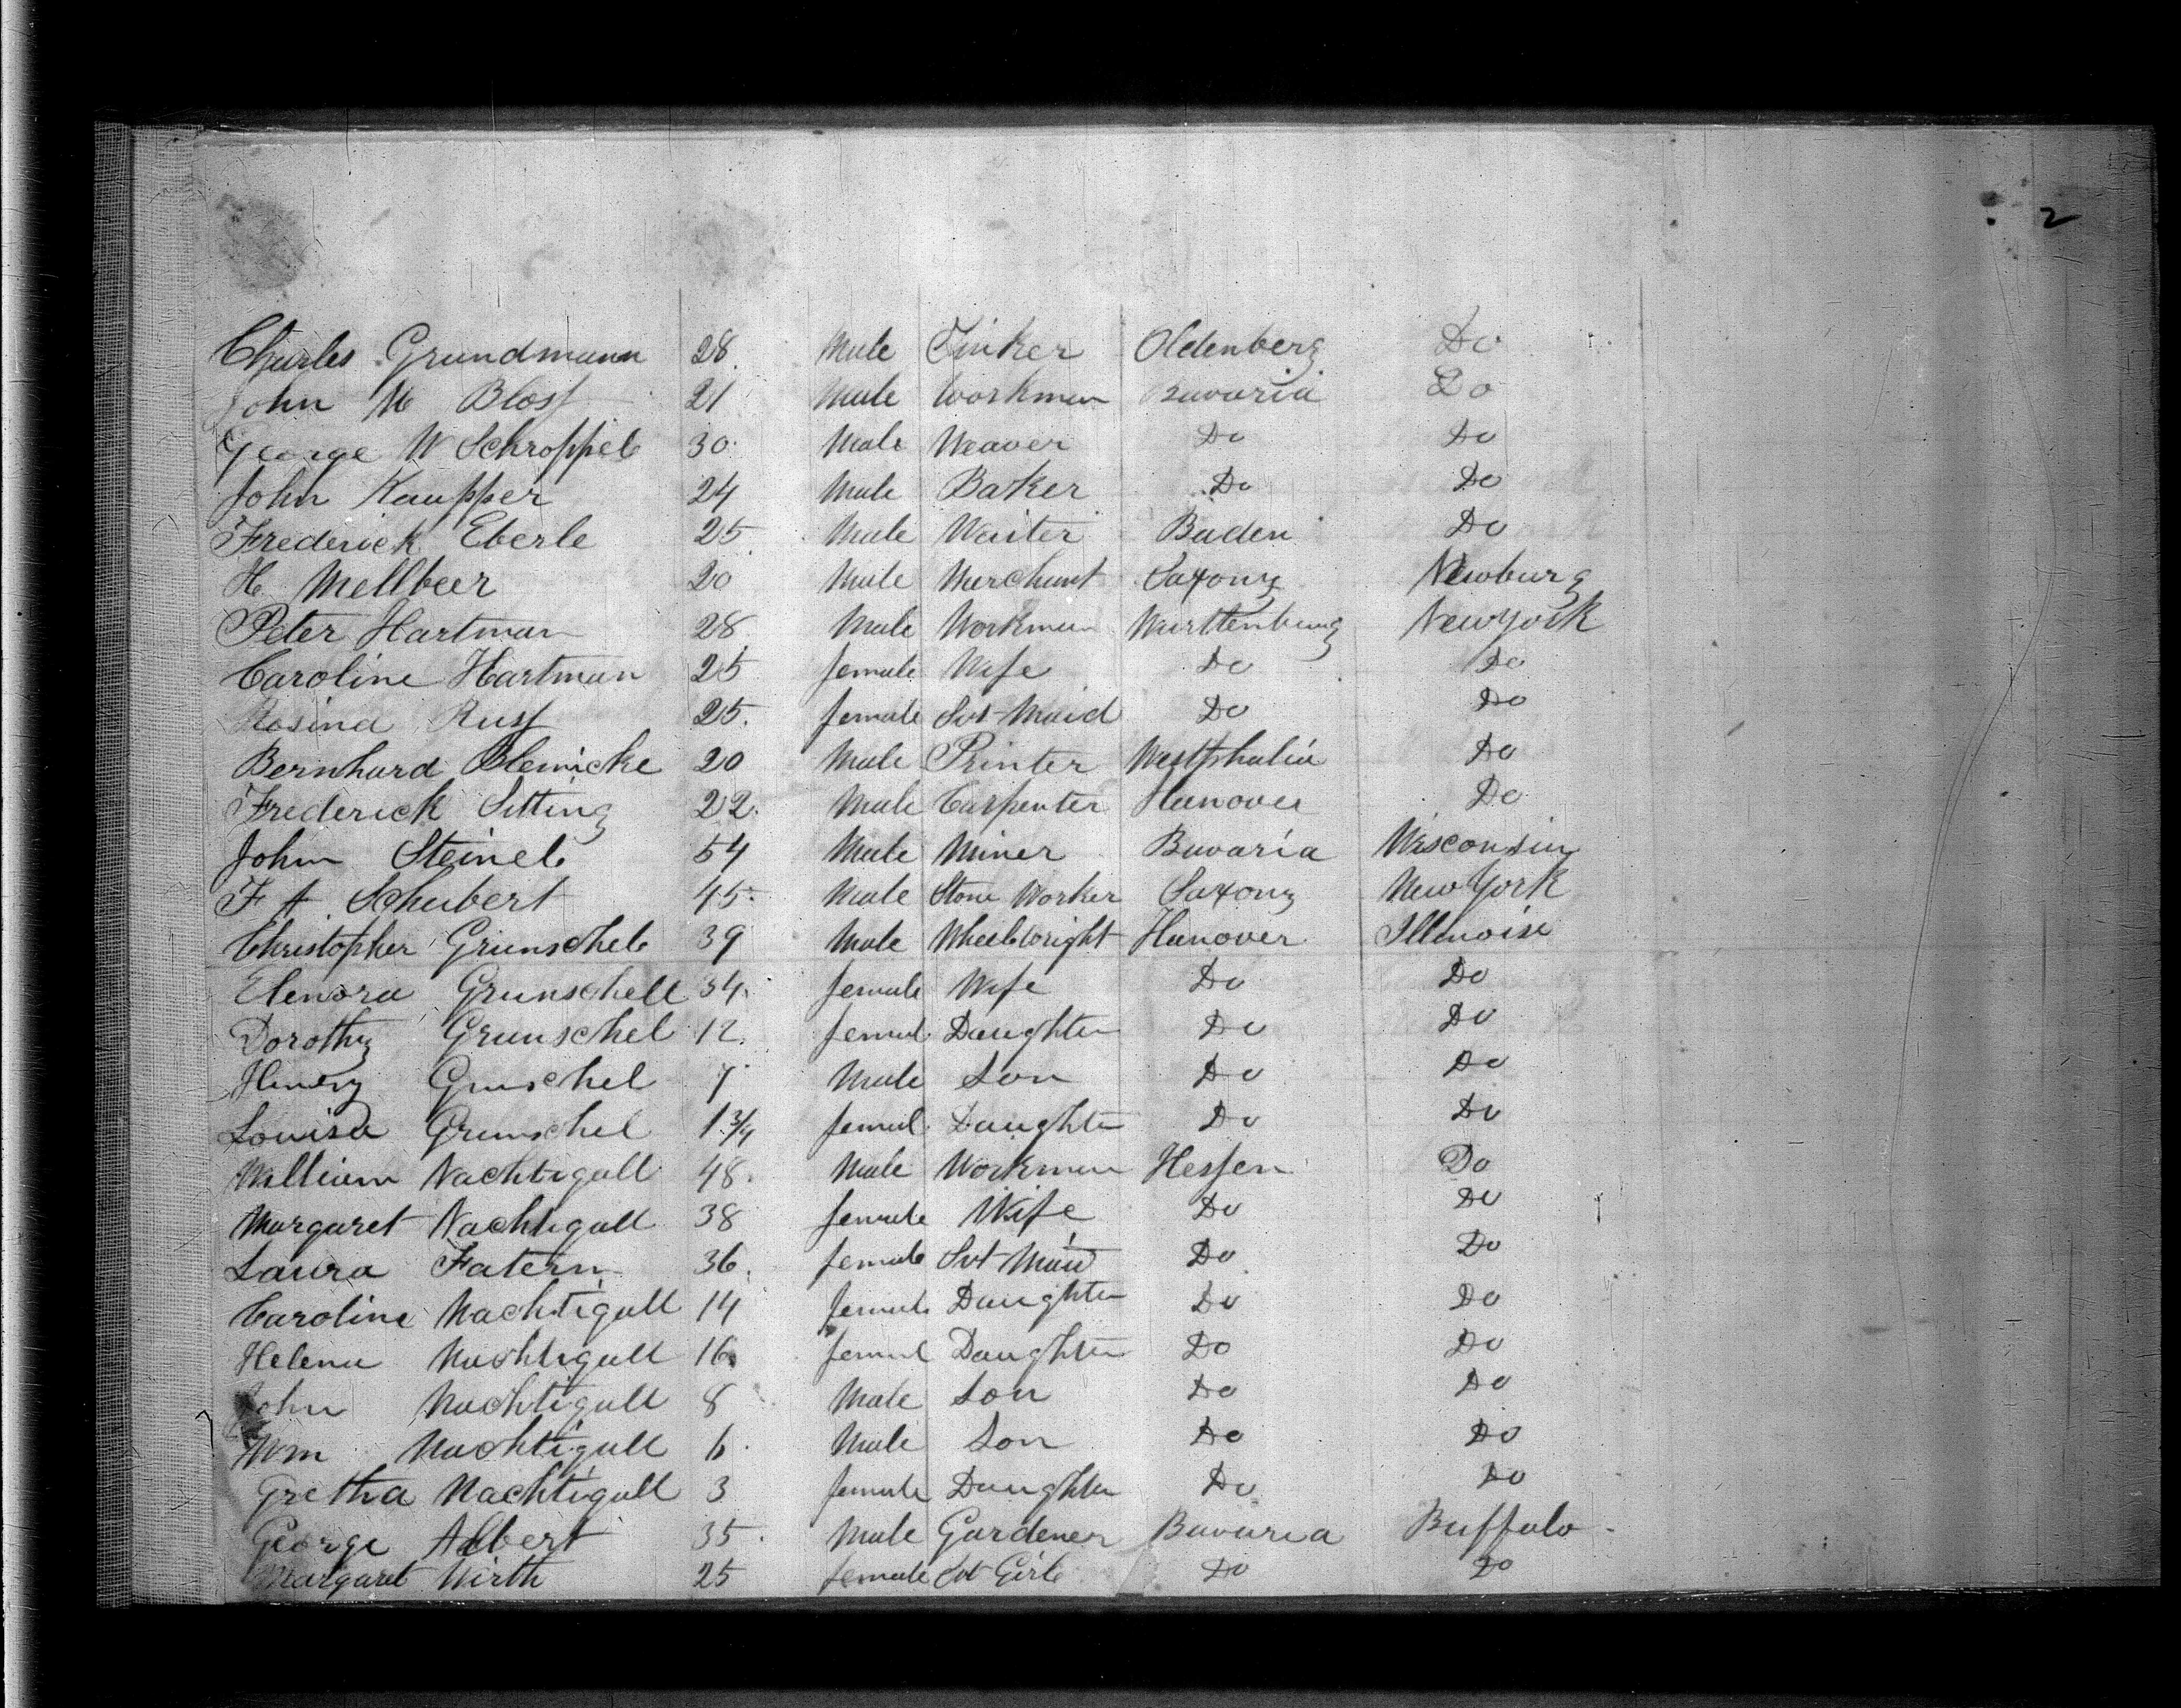 2
Charles Grundmann 28 Male Tinker Oldenberg Do
John M Bloss 21 Male Workman Bavaria Do
George W Schroppel 30 Male Weaver Do Do
John Kaupper 24 Male Baker Do Do
Frederick Eberle 25 Male Waiter Baden Do
H Mellbeer 20 Male Merchant Saxony Newburg
Peter Hartman 28 Male Workman Wurttenburg New York
Caroline Hartman 25 female Wife Do Do
Rosina Russ 25 female Svt Maid Do Do
Bernhard Blemicke 20 Male Printer Westphalia Do
Frederick Sitting 22 Male Carpenter Hanover Do
John Steinel 54 Male Miner Bavaria Wisconsin
F A Schubert 45 Male Stone Worker Saxony New York
Christopher Grunschel 39 Male Wheelwright Hanover Illinoise
Elenora Grunschell 34 female Wife Do Do
Dorothy Grunschel 12 femal Daughter Do Do
Henery Gruschel 7 Male Son Do Do
Louisa Grunschel 1 3/4 femal Daughter Do Do
William Nachtigall 48 Male Workman Hessen Do
Margaret Nachtigall 38 female Wife Do Do
Laura Fatern 36 female Svt Maid Do Do
Caroline Nachtigall 14 female Daughter Do Do
Helena Nachtigall 16 femal Daughter Do Do
John Nachtigall 8 Male Son Do Do
Wm Nachtigall 6 Male Son Do Do
Gretha Nachtigall 3 female Daughter Do Do
George Albert 35 Male Gardener Bavaria Buffalo
Margaret Wirth 25 female Svt Girl Do Do